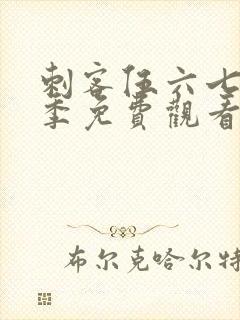 刺客伍六七
季免費觀看
布尔克哈尔特